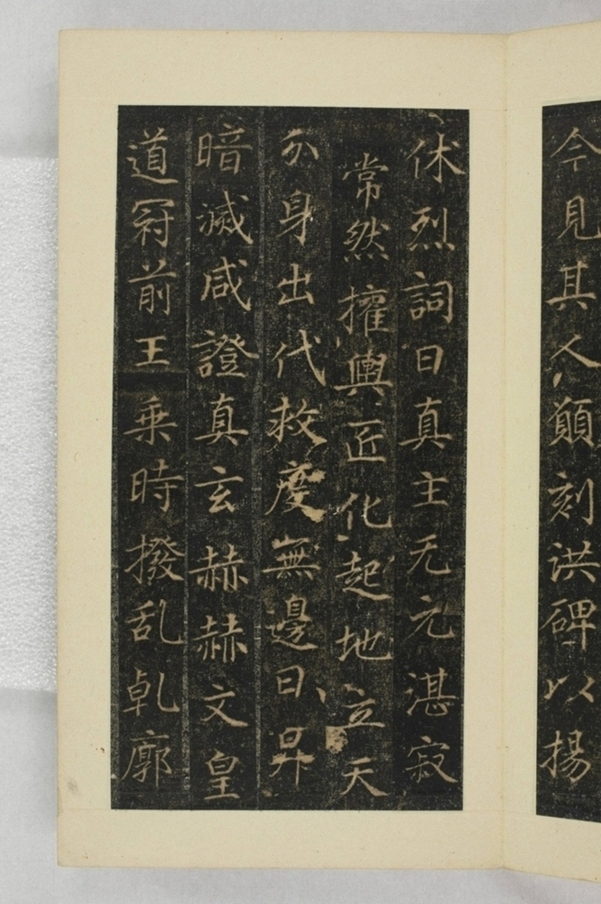 今見其人願刻洪碑以揚
休烈詞曰真主无元湛寂
常然攉輿匠化起地立天
分身出代救度無邊日昇
暗滅咸證真玄赫赫文皇
道冠前王乗時撥乱乹廓